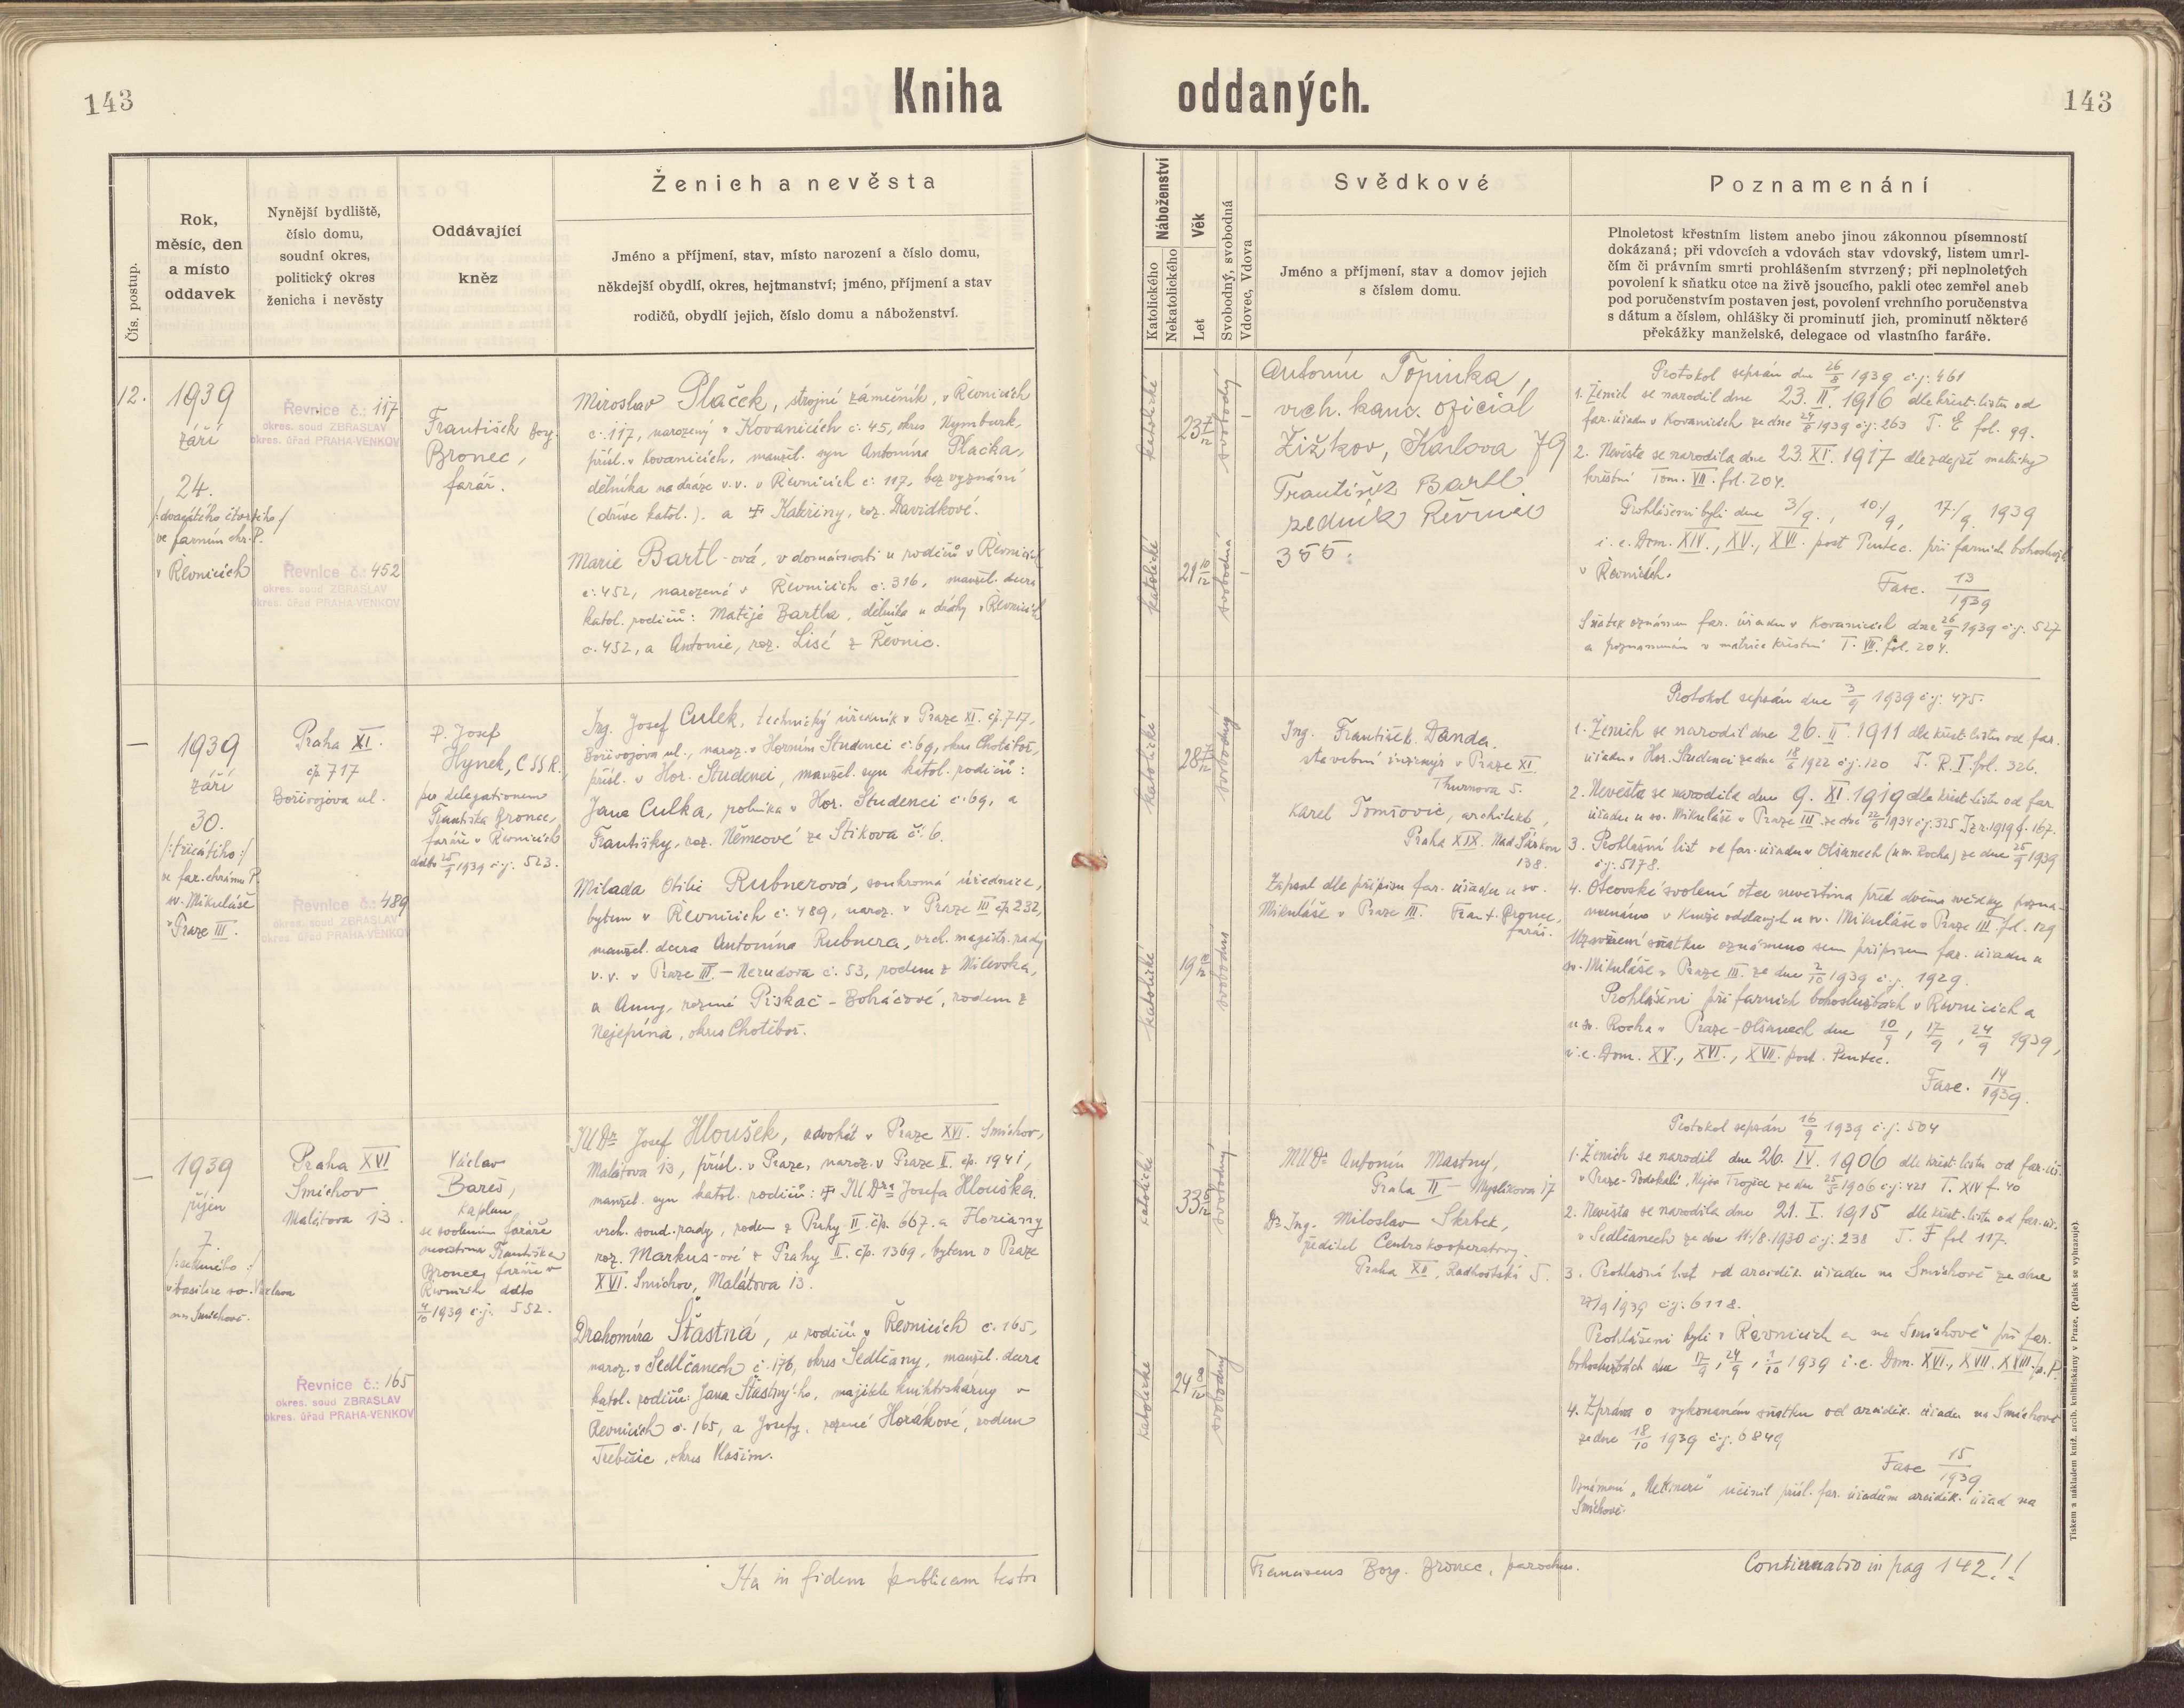 143
Kniha
oddaných.
143
Čís. postup.
Rok,
měsíc, den
a místo
oddavek
Nynější bydliště,
číslo domu,
soudní okres,
politický okres
ženicha i nevěsty
Oddávající
kněz
Ženich a nevěsta
Jméno a příjmení, stav, místo narození a číslo domu,
někdejší obydlí, okres, hejtmanství; jméno, příjmení a stav
rodičů, obydlí jejich, číslo domu a náboženství.
Náboženství
Katolického
Nekatolického
Věk
Let
Svobodný, svobodná
Vdovec, Vdova
Svědkové
Jméno a příjmení, stav a domov jejich
s číslem domu.
Poznamenání
Plnoletost křestním listem anebo jinou zákonnou písemností
dokázaná; při vdovcích a vdovách stav vdovský, listem umrl-
čím či právním smrti prohlášením stvrzený; při neplnoletých
povolení k sňatku otce na živě jsoucího, pakli otec zemřel aneb
pod poručenstvím postaven jest, povolení vrchního poručenstva
s dátum a číslem, ohlášky či prominutí jich, prominutí některé
překážky manželské, delegace od vlastního faráře.
12.
1939
září
24.
/:dvacátého čtvrtého:/
ve farním chr. P.
v Řevnicích
Řevnice č.: 117
okres. soud ZBRASLAV
okres. úřad PRAHA-VENKOV
Řevnice č.: 452
okres. soud ZBRASLAV
okres. úřad PRAHA-VENKOV
František Borg.
Bronec,
farář.
Miroslav Plaček, strojní zámečník, v Řevnicích
č. 117, narozený v Kovanicích č. 45, okres Nymburk,
přísl. v Kovanicích, manžel. syn Antonína Plačka,
dělníka na dráze v.v. v Řevnicích č. 117, bez vyznání
(dříve katol.). a Kateřiny, roz. Davídkové.
Marie Bartl-ová, v domácnosti u rodičů v Řevnicích
č. 452, narozená v Řevnicích č. 316, manžel. dcera
katol. rodičů: Matěje Bartla, dělníka u dráhy v Řevnicích
č. 452, a Antonie, roz. Lisé z Řevnic.
katolické
23
svobodný
katolické
21 10/12
svobodná
Antonín Topinka,
vrch. kanc. oficiál
Žižkov, Karlova 79
František Bartl
zedník Řevnice
355.
Protokol sepsán dne 26/8 1939 č.j: 461
1. Ženich se narodil dne 23. II. 1916 dle křest. listu od
far. úřadu v Kovanicích ze dne 1939 č.j: 263 T. E fol. 99.
2. Nevěsta se narodila dne 23. XI. 1917 dle zdejší matriky
křestní Tom. VII. fol. 204.
Prohlášeni byli dne 3/9., 10/9, 17/9. 1939
i. e. Dom. XIV., XV., XVI. post Pentec. při farních bohosluž.
v Řevnicích.
Fasc. 13/1939
Sňatek oznámen far. úřadu v Kovanicích dne 26/9 1939 č.j. 527
a poznamenán v matrice křestní T. VII. fol. 204.
—
1939
září
30.
/:třicátého:/
ve far. chrámu P.
sv. Mikuláše
v Praze III.
Praha XI.
čp. 717
Bořivojova ul.
Řevnice č.: 489
okres. soud ZBRASLAV
okres. úřad PRAHA-VENKOV
P. Josef
Hynek, CSSR.,
per delegationem
Františka Bronce,
faráře v Řevnicích
ddto 25/9 1939 č.j: 523.
Ing. Josef Culek, technický úředník v Praze XI. čp. 717,
Bořivojova ul., naroz. v Horním Studenci č. 69, okres Chotěboř,
přísl. v Hor. Studenci, manžel. syn katol. rodičů:
Jana Culka, rolníka v Hor. Studenci č. 69, a
Františky, roz. Němcové ze Stikova č. 6.
Milada Otilie Rubnerová, soukromá úřednice,
bytem v Řevnicích č. 489, naroz. v Praze III čp. 232,
manžel. dcera Antonína Rubnera, vrch. magistr. rady
v. v. v Praze III. – Nerudova č. 53, rodem z Milevska,
a Anny, rozené Piskač-Boháčové, rodem z
Nejepína, okres Chotěboř.
katolické
28 7/12
svobodný
katolické
19 10/12
svobodná
Ing. František Danda,
stavební inženýr v Praze XI
Thurnova 5.
Karel Tomšovic, architekt,
Praha XIX. Nad Šárkou
138.
Zápsal dle přípisu far. úřadu u sv.
Mikuláše v Praze III. Frant. Bronec,
farář.
Protokol sepsán dne 3/9 1939 č.j: 475.
1. Ženich se narodil dne 26. II. 1911 dle křest. listu od far.
úřadu v Hor. Studenci ze dne 18/6 1922 č.j. 120 T. R. I. fol. 326.
2. Nevěsta se narodila dne 9. XI. 1919 dle křest. listu od far.
úřadu u sv. Mikuláše v Praze III. ze dne 22/6 1934 č.j. 325 Tz r. 1919 f. 167.
3. Prohlašní list od far. úřadu v Olšanech (u sv. Rocha) ze dne 25/9 1939
č.j. 5178.
4. Otcovské svolení otce nevěstina před dvěma svědky pozna-
menáno v knize oddaných u sv. Mikuláše v Praze III. fol. 129
Uzavření sňatku oznámeno sem přípisem far. úřadu u
sv. Mikuláše v Praze III. ze dne 2/10 1939 č.j. 1929.
Prohlášeni při farních bohoslužbách v Řevnicích a
u sv. Rocha v Praze-Olšanech dne 10/9, 17/9, 24/9 1939,
i. e. Dom. XV., XVI., XVII. post. Pentec.
Fasc. 14/1939.
—
1939
říjen
7
/:sedmého:/
v basilice sv. Václava
na Smíchově.
Praha XVI
Smíchov
Malátova 13.
Řevnice č.: 165
okres. soud ZBRASLAV
okres. úřad PRAHA-VENKOV
Václav
Bareš,
kaplan
se svolením faráře
nevěstina Františka
Bronce, faráře v
Řevnicích ddto
4/10 1939 č.j. 552.
JUDr Josef Hloušek, advokát v Praze XVI. Smíchov,
Malátova 13, přísl. v Praze, naroz. v Praze II. čp. 1941,
manžel. syn katol. rodičů: JUDra Josefa Hlouška,
vrch. soud. rady, rodem z Prahy II. čp. 667. a Floriany
roz. Markus-ové z Prahy II. čp. 1369, bytem v Praze
XVI. Smíchov, Malátova 13.
Drahomíra Šťastná, u rodičů v Řevnicích č. 165,
naroz. v Sedlčanech č. 176, okres Sedlčany, manžel. dcera
katol. rodičů: Jana Šťastný-ho, majitele knihtiskárny v
Řevnicích č. 165, a Josefy, rozené Horákové, rodem
Třebišic, okres Vlašim.
katolické
33 5/12
svobodný
katolické
24 8/12
svobodný
MUDr Antonín Mastný,
Praha II – Myslíkova 17
Dr. Ing. Miloslav Skrbek,
ředitel Centrokooperativy.
Praha XII, Radhošťská 5.
Protokol sepsán 16/9 1939 č.j: 504
1. Ženich se narodil dne 26. IV. 1906 dle křest. listu od far. úř.
v Praze-Podskalí, Nejsv. Trojice ze dne 25/5 1906 č.j: 421 T. XIV f. 40
2. Nevěsta se narodila dne 21. I. 1915 dle křest. listu od far. úř.
v Sedlčanech ze dne 11/8. 1930 č.j: 238 T. F fol 117.
3. Prohlašní list od arciděk. úřadu na Smíchově ze dne
27/9 1939 č.j: 6118.
Prohlášeni byli v Řevnicích a na Smíchově při far.
bohoslužbách dne 17/9, 24/9, 1/10 1939 i. e. Dom. XVI., XVII. XVIII. p. P.
4. Zpráva o vykonaném sňatku od arciděk. úřadu na Smíchově
ze dne 18/10 1939 č.j. 6849
Fasc 15/1939
Oznámení „Netemere“ učinil přísl. far. úřadům arciděk. úřad na
Smíchově.
Ita in fidem publicam testor
Franciscus Borg. Bronec, parochus.
Continuatio in pag 142!!
Tiskem a nákladem kníž. arcib. knihtiskárny v Praze. (Patisk se vyhrazuje).